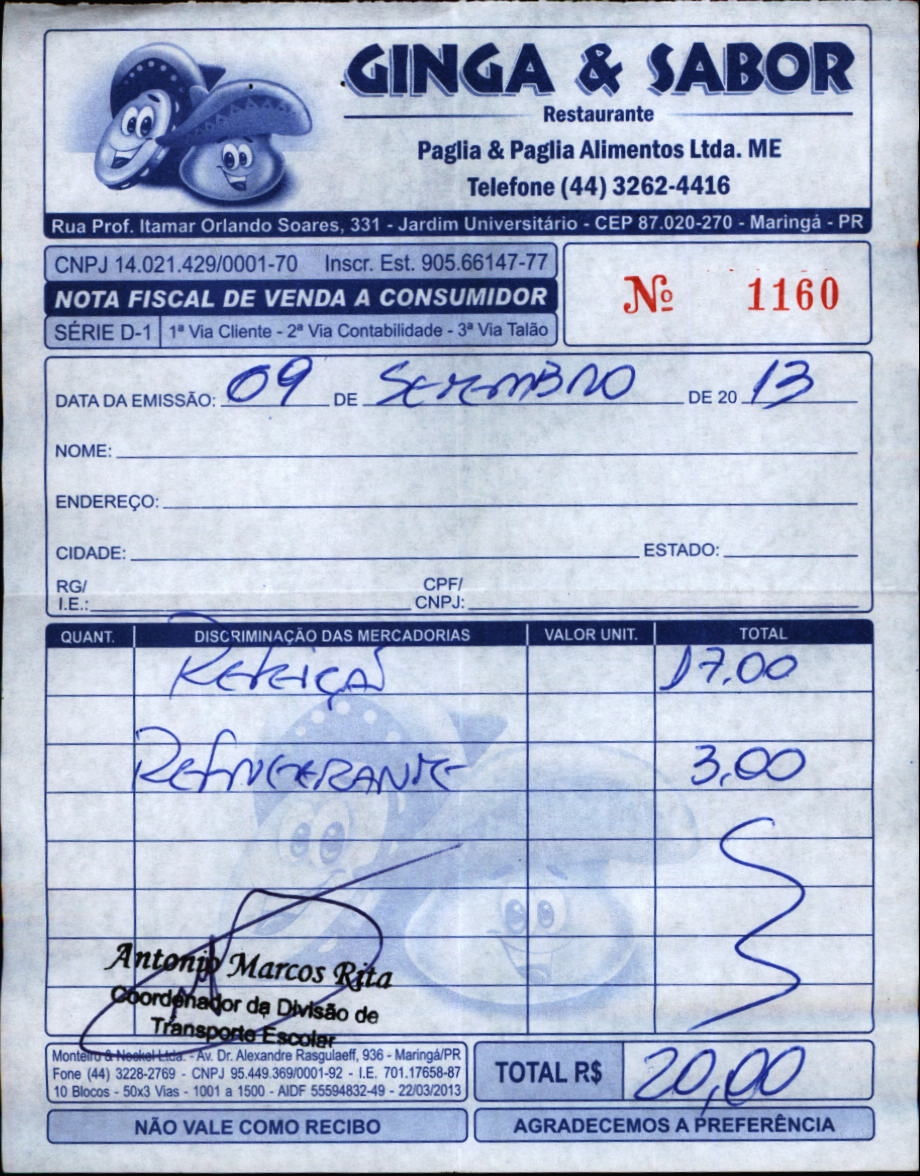 GINGA & SABOR
Restaurante
Paglia & Paglia Alimentos Ltda. ME
Telefone (44) 3262-4416
Rua Prof. Itamar Orlando Soares, 331 - Jardim Universitário - CEP 87.020-270 - Maringá - PR
CNPJ 14.021.429/0001-70 Inscr. Est. 905.66147-77
NOTA FISCAL DE VENDA A CONSUMIDOR
SÉRIE D-1 1ª Via Cliente - 2ª Via Contabilidade - 3ª Via Talão
Nº 1160
DATA DA EMISSÃO: 09 DE SETEMBRO DE 2013
NOME:
ENDEREÇO:
CIDADE: ESTADO:
RG/ CPF/
I.E.: CNPJ:
QUANT. DISCRIMINAÇÃO DAS MERCADORIAS VALOR UNIT. TOTAL
REFEIÇÃO 17,00
REFRIGERANTE 3,00
Antonio Marcos Rita
Coordenador da Divisão de
Transporte Escolar
Monteiro & Noskel Ltda. - Av. Dr. Alexandre Rasgulaeff, 936 - Maringá/PR
Fone (44) 3228-2769 - CNPJ 95.449.369/0001-92 - I.E. 701.17658-87
10 Blocos - 50x3 Vias - 1001 a 1500 - AIDF 55594832-49 - 22/03/2013
TOTAL R$ 20,00
NÃO VALE COMO RECIBO
AGRADECEMOS A PREFERÊNCIA